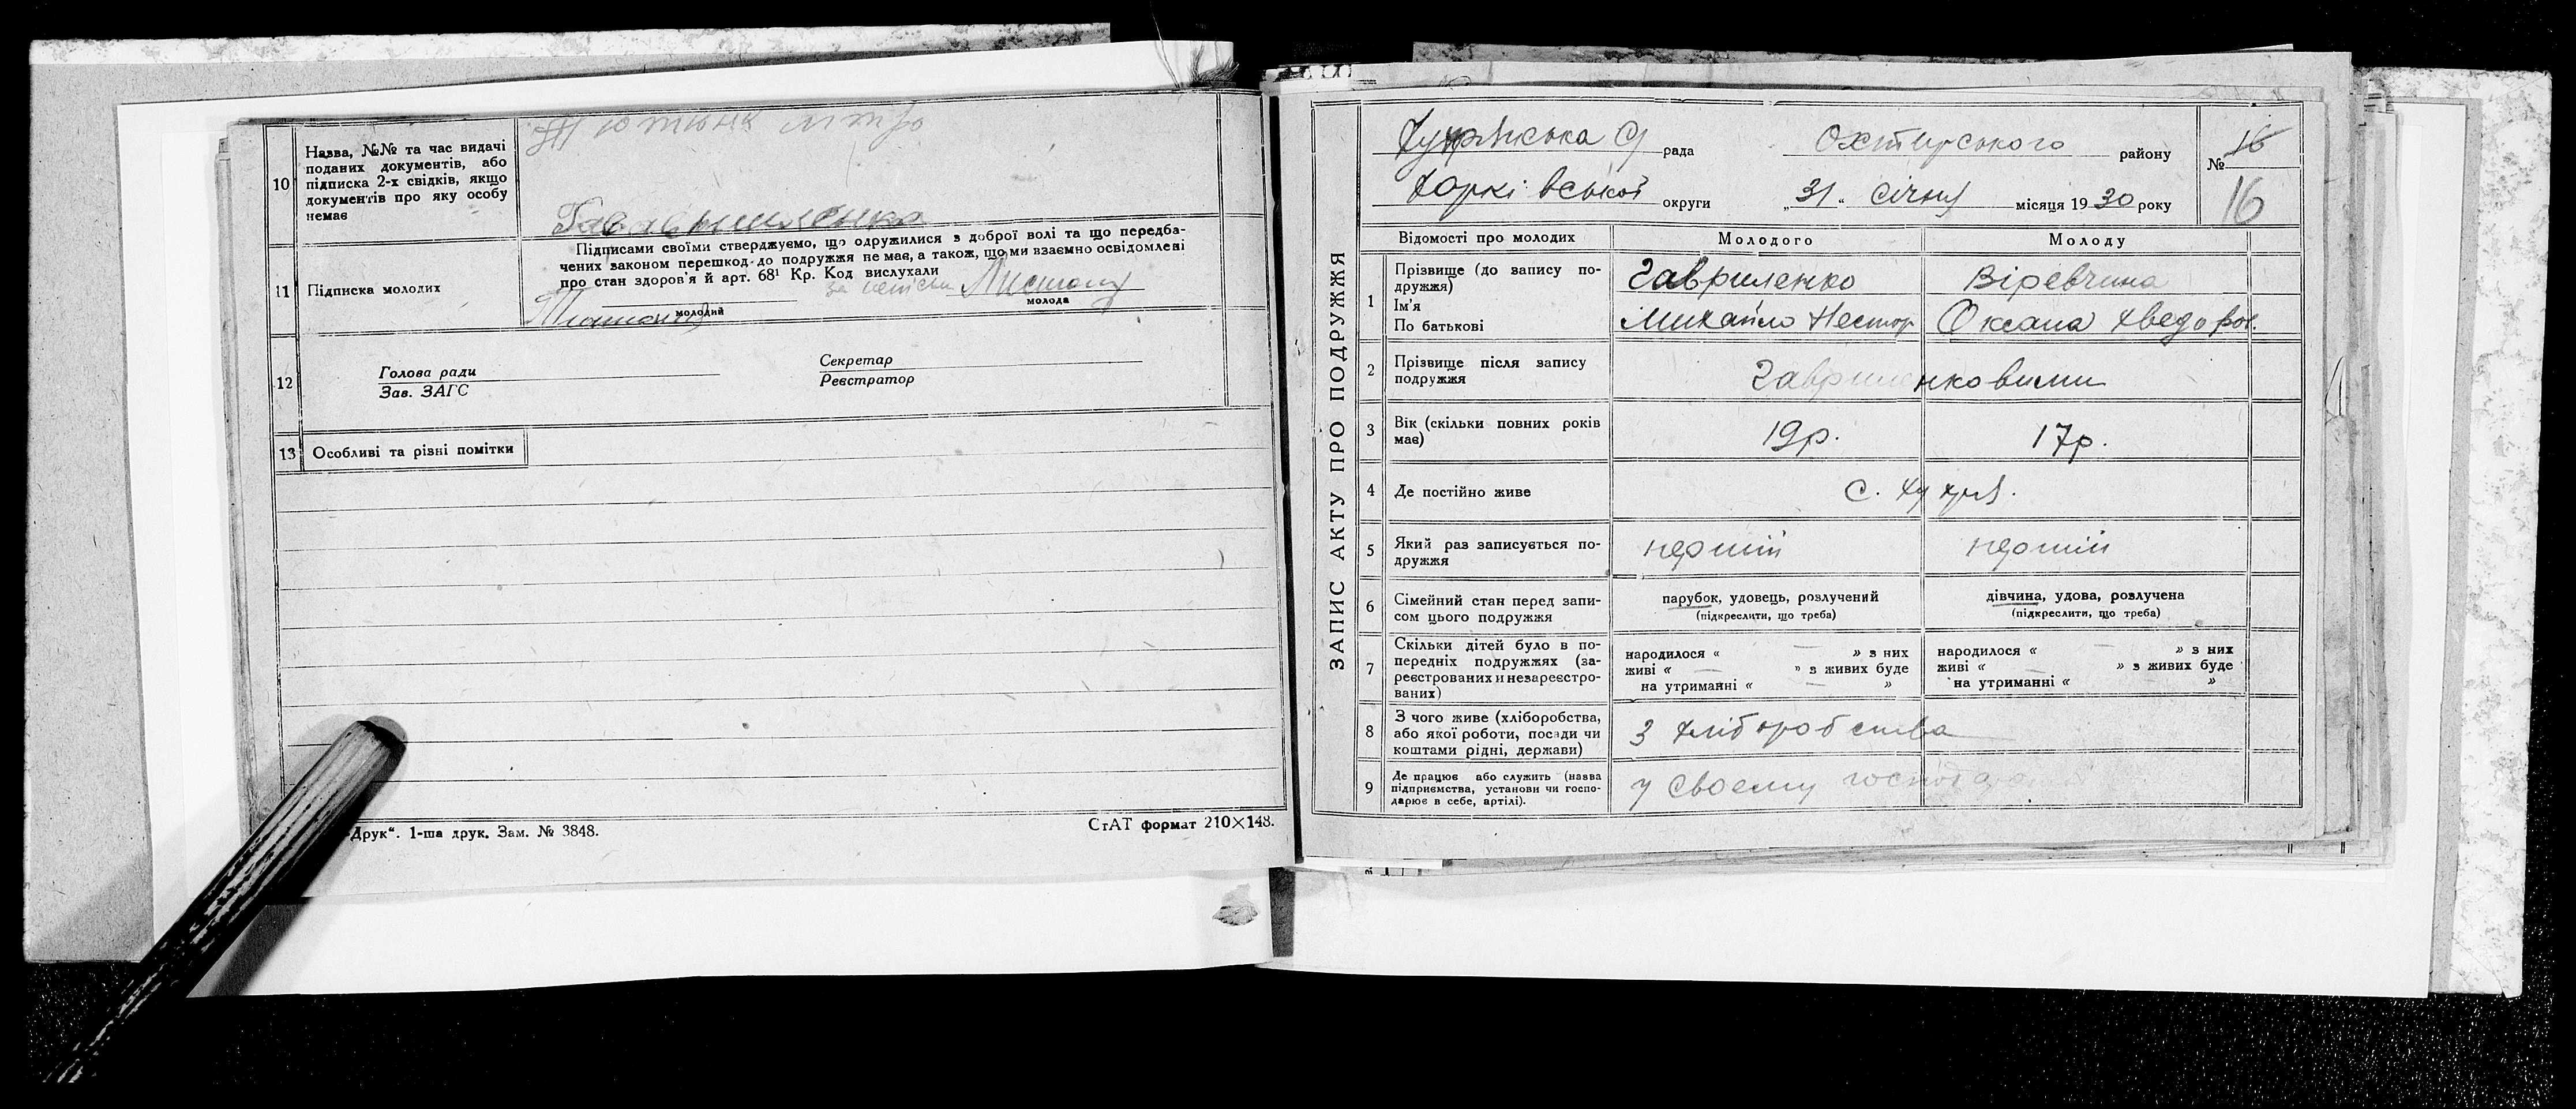 10
Назва, №№ та час видачі
поданих документів, або
підписка 2-х свідків, якщо
документів про яку особу
немає
11
Підписка молодих
Підписами своїми стверджуємо, що одружилися з доброї волі та що передба-
чених законом перешкод до подружжя не має, а також, що ми взаємно освідомлені
про стан здоров'я й арт. 68¹ Кр. Код вислухали
молодий
молода
12
Голова ради
Зав. ЗАГС
Секретар
Реєстратор
13
Особливі та різні помітки
Друк“. 1-ша друк. Зам. № 3848.
СтАТ формат 210×148.
ЗАПИС АКТУ ПРО ПОДРУЖЖЯ
Хухрянська С/ рада Охтирського району
№ 16
Харківської округи „31“ січня місяця 1930 року
16
Відомості про молодих Молодого Молоду
1
Прізвище (до запису по-
дружжя)
Ім'я
По батькові
Гавриленко Віревчина
Михайло Нестор Оксана Хведоров.
2
Прізвище після запису
подружжя
Гавриленковими
3
Вік (скільки повних років
має)
19р. 17р.
4
Де постійно живе
с. Хухря.
5
Який раз записується по-
дружжя
перший перший
6
Сімейний стан перед запи-
сом цього подружжя
парубок, удовець, розлучений
(підкреслити, що треба)
дівчина, удова, розлучена
(підкреслити, що треба)
7
Скільки дітей було в по-
передніх подружжях (за-
реєстрованих и незареєстро-
ваних)
народилося « — » з них
живі « — » з живих буде
на утриманні « — »
народилося « — » з них
живі « — » з живих буде
на утриманні « — »
8
З чого живе (хліборобства,
або якої роботи, посади чи
коштами рідні, держави)
З хліборобства
9
Де працює або служить (назва
підприємства, установи чи госпо-
дарює в себе, артілі).
у своему